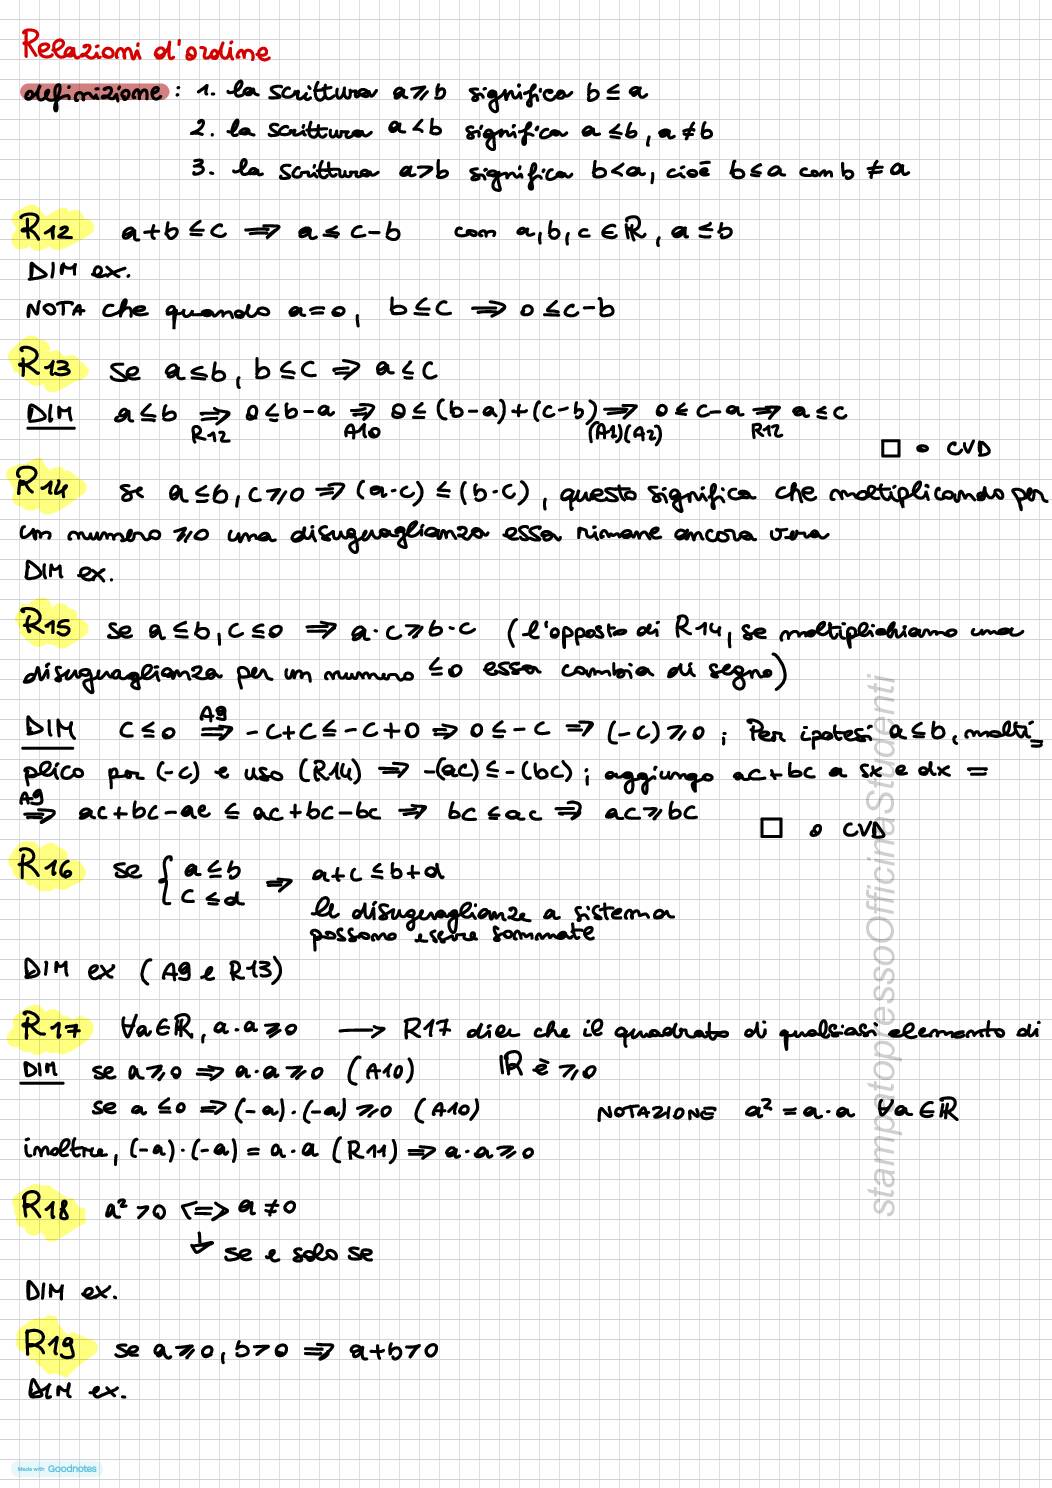 Relazioni d'ordine
definizione : 1. la scrittura a ⩾ b significa b ≤ a
2. la scrittura a < b significa a ≤ b, a ≠ b
3. la scrittura a > b significa b < a, cioè b ≤ a con b ≠ a
R12 a + b ≤ c ⇒ a ≤ c - b con a, b, c ∈ ℝ, a ≤ b
DIM ex.
NOTA che quando a = 0, b ≤ c ⇒ 0 ≤ c - b
R13 se a ≤ b, b ≤ c ⇒ a ≤ c
DIM a ≤ b ⇒ 0 ≤ b - a ⇒ 0 ≤ (b - a) + (c - b) ⇒ 0 ≤ c - a ⇒ a ≤ c
R12 A10 (A1)(A2) R12
□ o CVD
R14 se a ≤ b, c ⩾ 0 ⇒ (a·c) ≤ (b·c), questo significa che moltiplicando per
un numero ⩾0 una disuguaglianza essa rimane ancora vera
DIM ex.
R15 se a ≤ b, c ≤ 0 ⇒ a·c ⩾ b·c (l'opposto di R14, se moltiplichiamo una
disuguaglianza per un numero ≤0 essa cambia di segno)
A9
DIM c ≤ 0 ⇒ -c + c ≤ -c + 0 ⇒ 0 ≤ -c ⇒ (-c) ⩾ 0 ; Per ipotesi a ≤ b, molti=
plico per (-c) e uso (R14) ⇒ -(ac) ≤ -(bc) ; aggiungo ac + bc a sx e dx =
A9
⇒ ac + bc - ac ≤ ac + bc - bc ⇒ bc ≤ ac ⇒ ac ⩾ bc
□ o CVD
R16 se { a ≤ b ⇒ a + c ≤ b + d
c ≤ d
le disuguaglianze a sistema
possono essere sommate
DIM ex (A9 e R13)
R17 ∀a ∈ ℝ, a·a ⩾ 0 → R17 dice che il quadrato di qualsiasi elemento di
DIM se a ⩾ 0 ⇒ a·a ⩾ 0 (A10) ℝ è ⩾0
se a ≤ 0 ⇒ (-a)·(-a) ⩾ 0 (A10) NOTAZIONE a² = a·a ∀a ∈ ℝ
inoltre, (-a)·(-a) = a·a (R11) ⇒ a·a ⩾ 0
R18 a² > 0 <=> a ≠ 0
↳ se e solo se
DIM ex.
R19 se a ⩾ 0, b > 0 ⇒ a + b > 0
DIM ex.
stampatopressoOfficinaStudenti
Made with Goodnotes